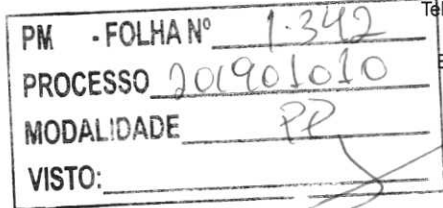 PM - FOLHA Nº 1.342
Tel
PROCESSO 201901010
E
MODALIDADE PP
VISTO: